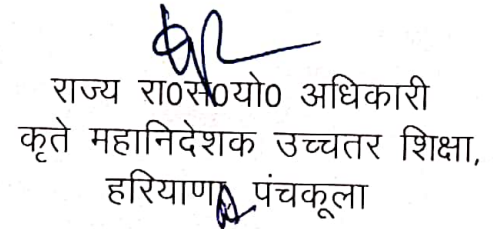 राज्य रा0से0यो0 अधिकारी
कृते महानिदेशक उच्चतर शिक्षा,
हरियाणा पंचकूला